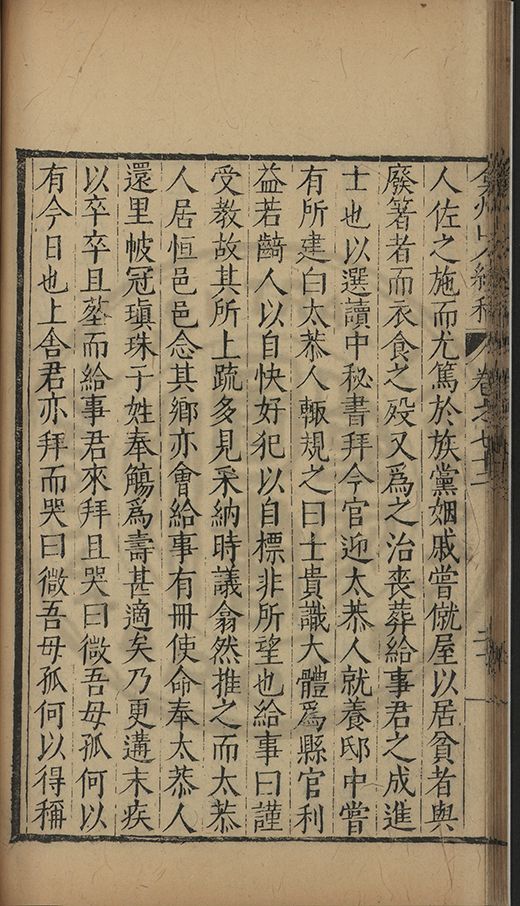 弇州山人續稿 卷之七十二 二
人佐之施而尤篤於族黨姻戚嘗僦屋以居貧者與
廢箸者而衣食之歿又爲之治喪葬給事君之成進
士也以選讀中秘書拜今官迎太恭人就養邸中嘗
有所建白太恭人輙規之曰士貴識大體爲縣官利
益若齮人以自快好犯以自標非所望也給事曰謹
受教故其所上疏多見采納時議翕然推之而太恭
人居恒邑邑念其鄉亦會給事有冊使命奉太恭人
還里帔冠瑱珠子姓奉觴爲壽甚適矣乃更遘末疾
以卒卒且塟而給事君來拜且哭曰微吾母孤何以
有今日也上舍君亦拜而哭曰微吾母孤何以得稱